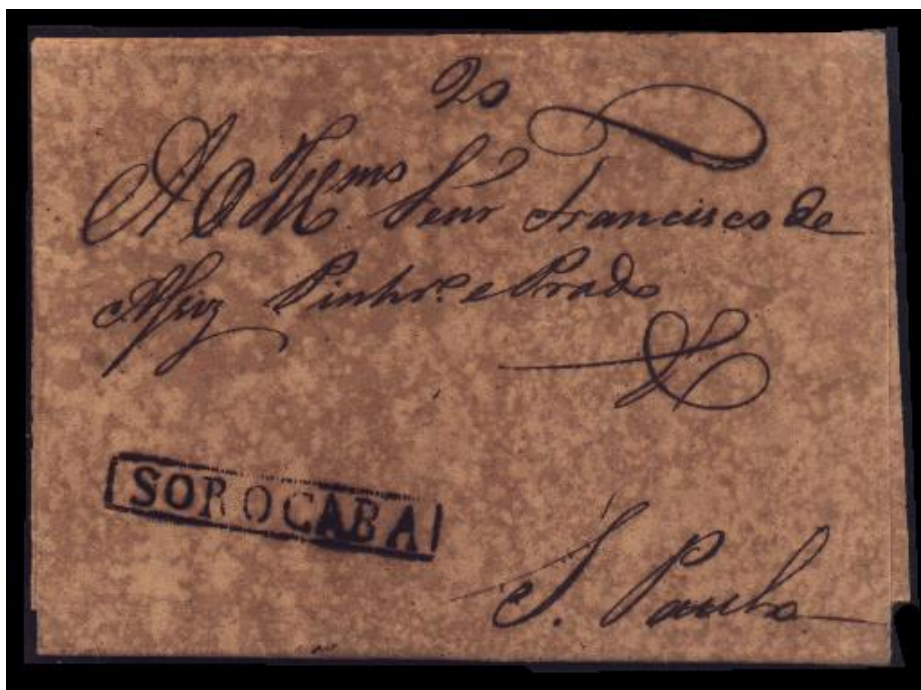 20
Ao Illmo Senr Francisco de
Pinhro e Prado
SOROCABA
S. Paulo